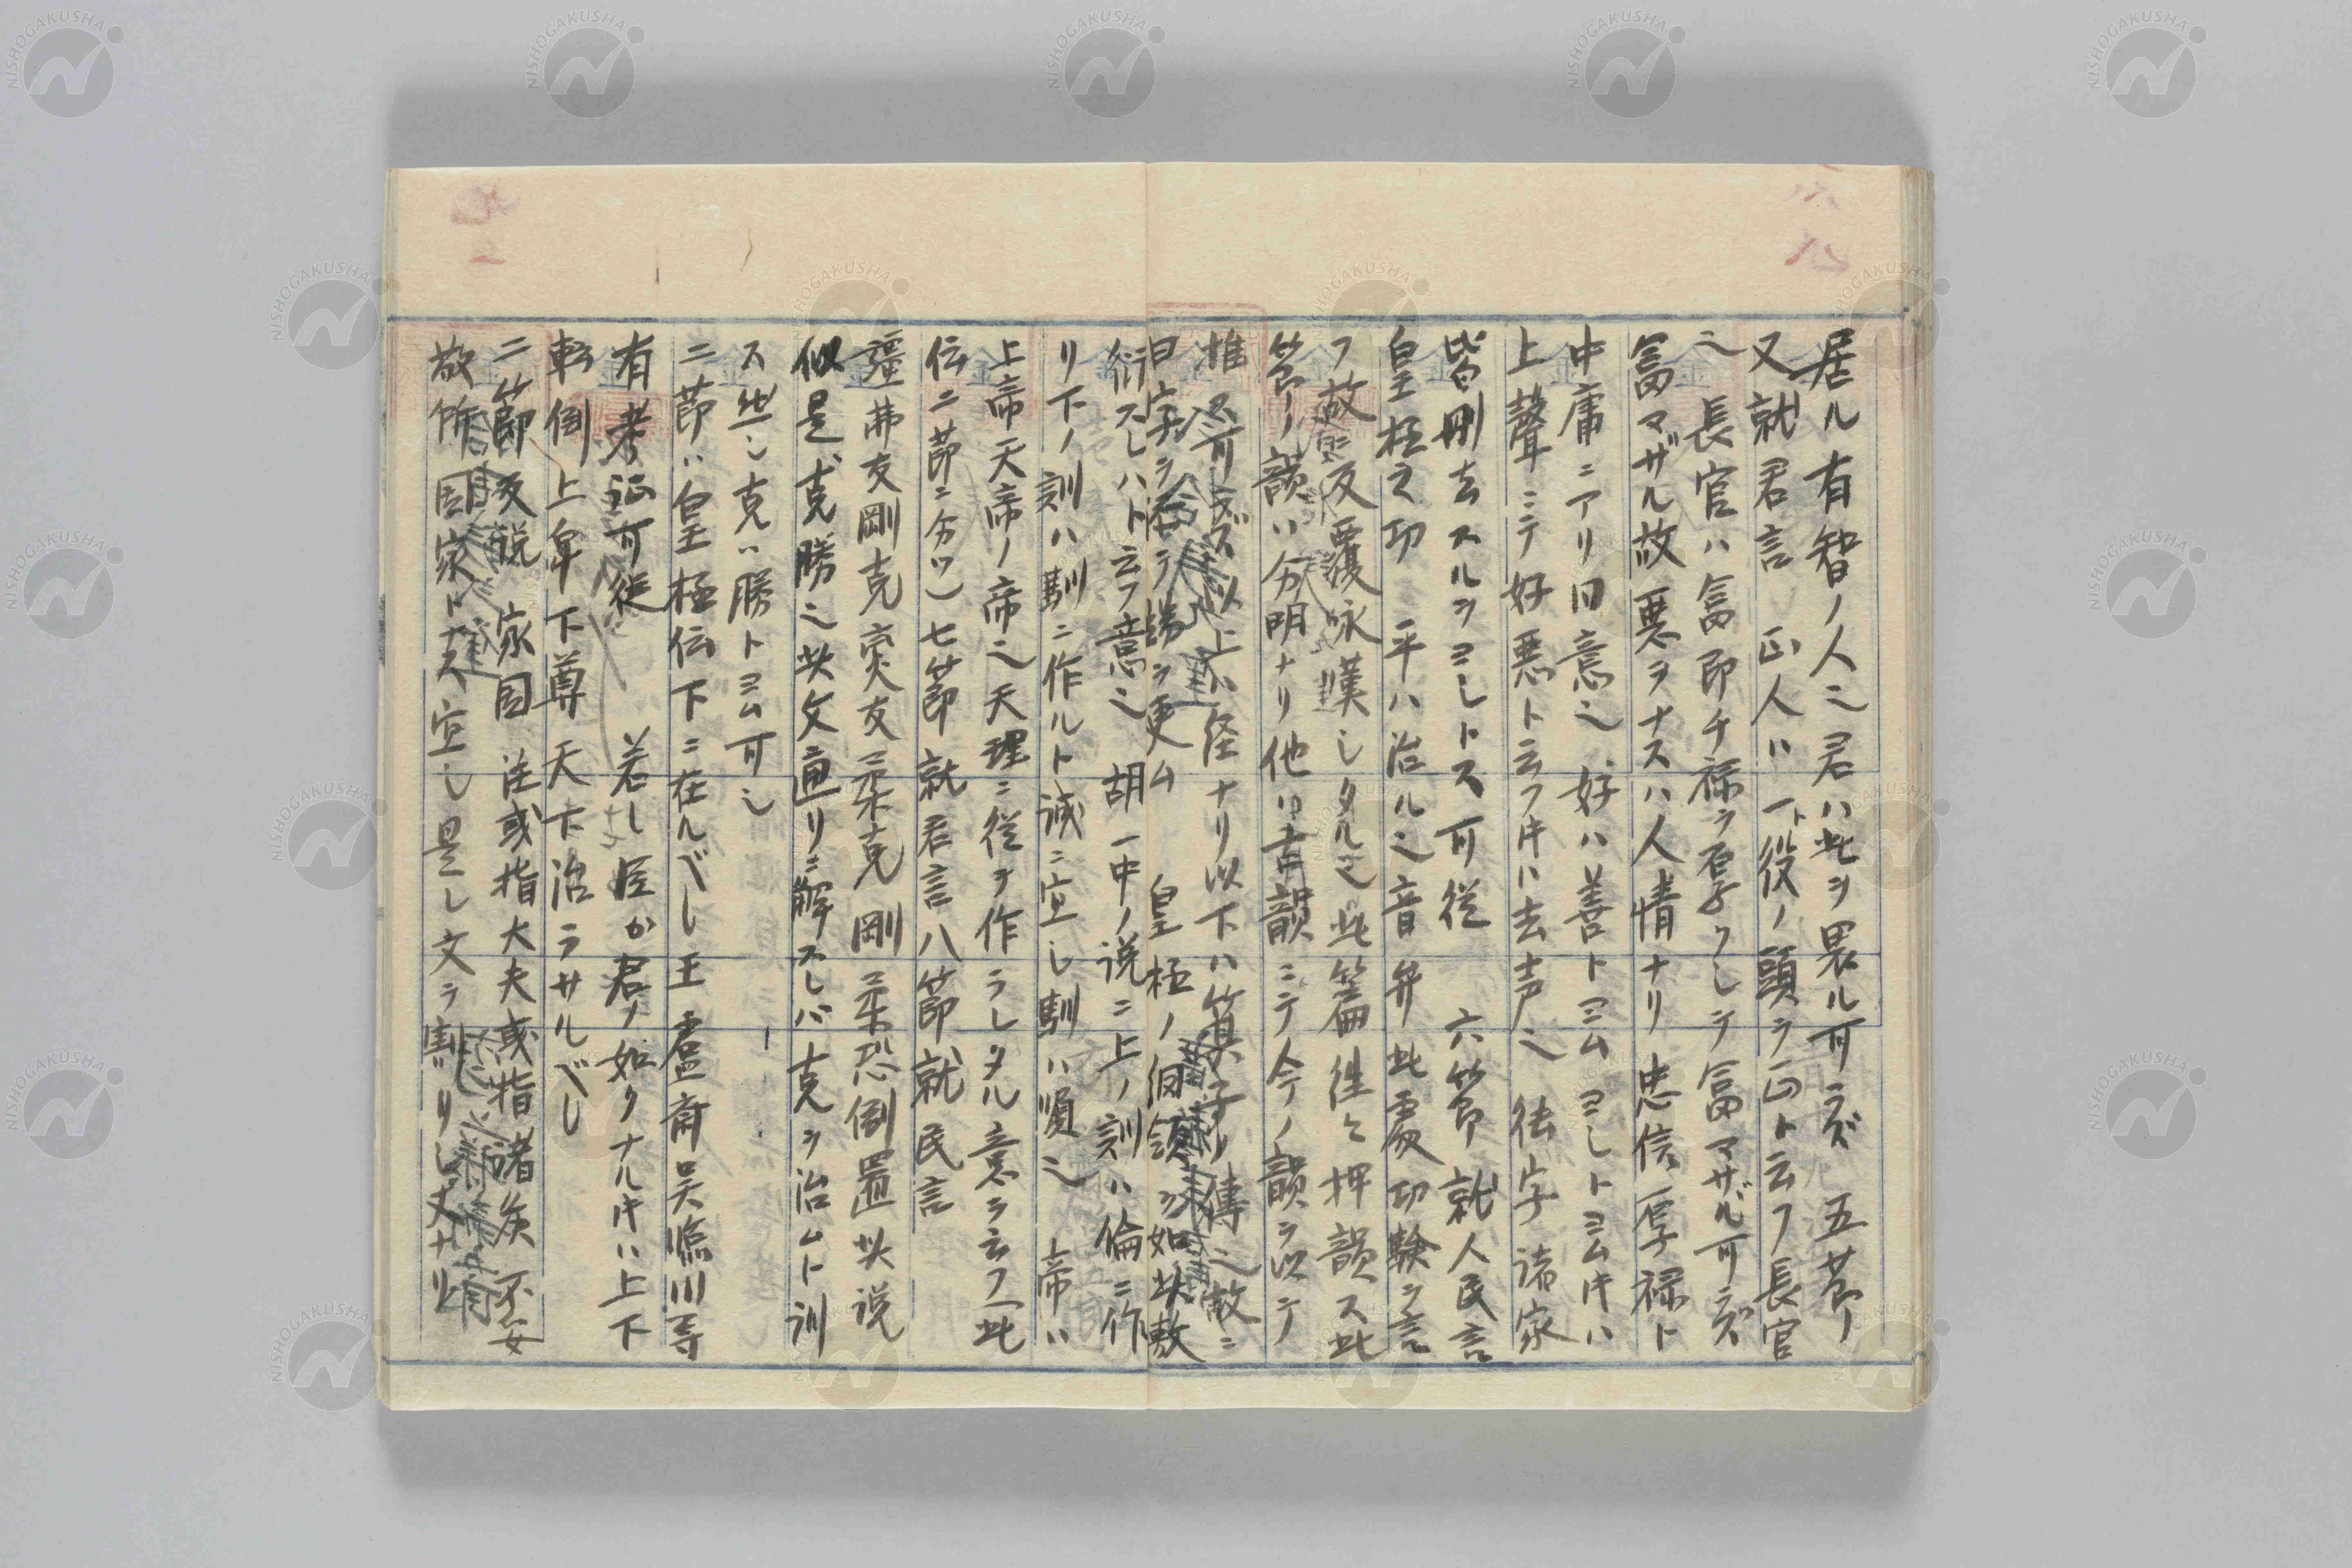 居ル有智ノ人ニ君ハ此ヲ畏ル可ラズ 五節ノ
又就君言 正人ハ一ト役ノ頭ヲ正ト云フ長官
之 長官ハ富即チ禄ヲ厚クシテ富マザル可ラズ
富マザル故悪ヲナスハ人情ナリ 忠信厚禄ト
中庸ニアリ同意之 好ハ善トヨム ヨシトヨム时ハ
上聲ニテ好悪ト云フ时ハ去声之 徃字 諸家
皆刪去スルヲヨシトス可従 六節 就人民言
皇極之功 平ハ治ル之音弁 此處功験ヲ言
フ故 反覆咏嘆シタル之 此篇徃々押韻ス此
節ノ韻ハ分明ナリ他ハ古韻ニテ今ノ韻ヲ以テ
推 可ラズ以上ハ経ナリ以下ハ箕子ノ傳之故ニ
曰字ヲ 更ム 皇極ノ 如此敷
衍スレハト云フ意之 胡一中ノ説ニ上ノ訓ハ倫ニ作
リ下ノ訓ハ馴ニ作ルト誠ニ宜し馴ハ順之 帝ハ
上帝天帝ノ帝之天理ニ従テ作ラレタル意ヲ云フ(此
伝ニ節ニ分ツ)七節就君言八節就民言
彊弗友剛克 燮友柔克 剛柔恐倒置此説
似是 克勝之此文通リニ解スレバ克ヲ治ムト訓
ス然シ克ハ勝トヨム可シ
二節ハ皇極伝下ニ在ルベし王魯斎呉臨川等
有考証可従 若し臣か君ノ如クナル时ハ上下
転倒上卑下尊 天下治ラサルベし
二節反説 家国 注或指大夫或指諸矦 不安
敬所国家トナス宜し是レ文ヲ割リし丈ナリ